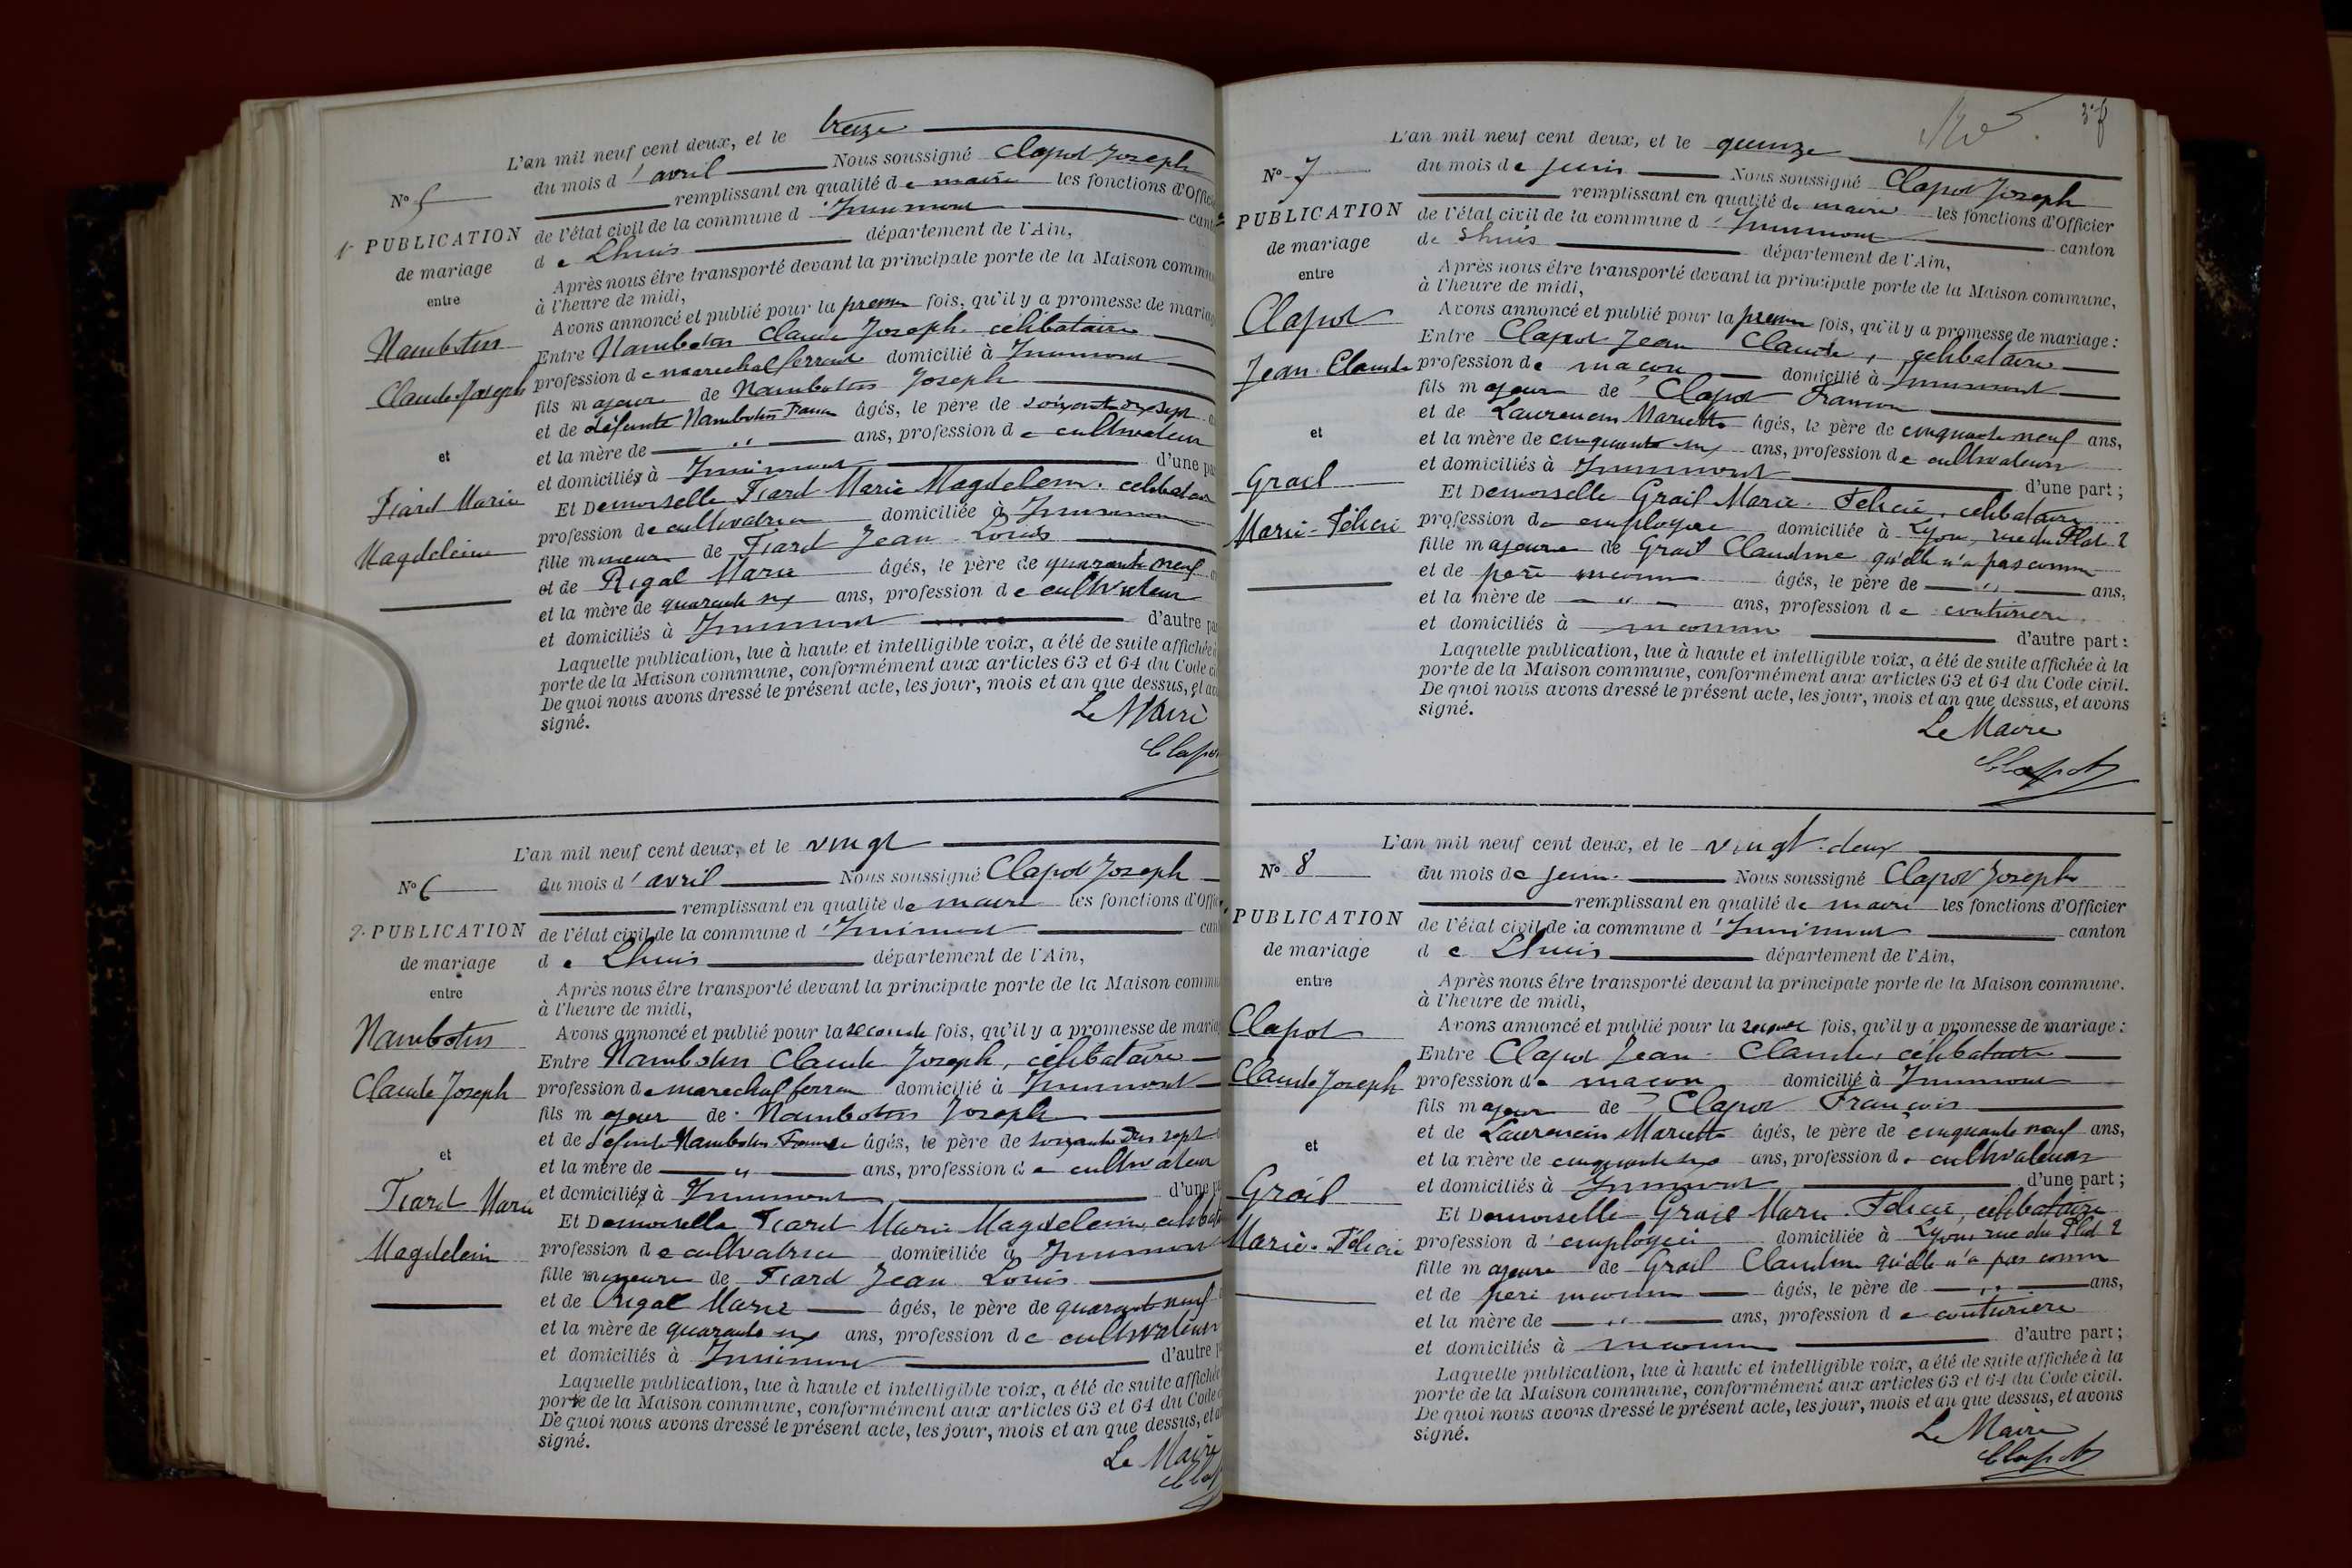 L'an mil neuf cent deux, et le treize
N° 5
du mois d'avril Nous soussigné Clapot Joseph
remplissant en qualité de maire les fonctions d'Offici
1e PUBLICATION
de l'état civil de la commune d'Innimont cant
de mariage
de Lhuis département de l'Ain,
entre
Après nous être transporté devant la principale porte de la Maison commun
à l'heure de midi,
Avons annoncé et publié pour la premre fois, qu'il y a promesse de mariag
Nambotin
Entre Nambotin Claude Joseph célibataire
Claude Joseph
profession de marechal ferrant domicilié à Innimont
fils majeur de Nambotin Joseph
et de défunte Nambotin Franse âgés, le père de soixante dix sept
et
et la mère de " ans, profession de cultivateur
et domiciliés à Innimont d'une pa
Tiard Marie
Et Demoiselle Tiard Marie Magdeleine célibataire
Magdeleine
profession de cultivatrice domiciliée à Innimont
fille mineure de Tiard Jean Louis
et de Rigal Marie âgés, le père de quarante neuf
et la mère de quarante six ans, profession de cultivateur
et domiciliés à Innimont d'autre pa
Laquelle publication, lue à haute et intelligible voix, a été de suite affichée à
porte de la Maison commune, conformément aux articles 63 et 64 du Code ci
De quoi nous avons dressé le présent acte, les jour, mois et an que dessus, et av
signé.
Le Maire
Clapot
L'an mil neuf cent deux, et le vingt
N° 6
du mois d'avril Nous soussigné Clapot Joseph
remplissant en qualité de maire les fonctions d'Offic
2e PUBLICATION
de l'état civil de la commune d'Innimont can
de mariage
de Lhuis département de l'Ain,
entre
Après nous être transporté devant la principale porte de la Maison commu
à l'heure de midi,
Avons annoncé et publié pour la seconde fois, qu'il y a promesse de maria
Nambotin
Entre Nambotin Claude Joseph, célibataire
Claude Joseph
profession de marechal ferran domicilié à Innimont
fils majeur de Nambotin Joseph
et de défunte Nambotin Franse âgés, le père de soixante dix sept
et
et la mère de " ans, profession de cultivateur
et domiciliés à Innimont d'une p
Tiard Marie
Et Demoiselle Tiard Marie Magdeleine, célibat
Magdelein
profession de cultivatrice domiciliée à Innimont
fille mineure de Tiard Jean Louis
et de Rigal Marie âgés, le père de quarante neuf
et la mère de quarante six ans, profession de cultivateur
et domiciliés à Innimont d'autre p
Laquelle publication, lue à haute et intelligible voix, a été de suite affichée
porte de la Maison commune, conformément aux articles 63 et 64 du Code
De quoi nous avons dressé le présent acte, les jour, mois et an que dessus, et a
signé.
Le Maire
Clap
L'an mil neuf cent deux, et le quinze
N° 7
du mois de juin Nous soussigné Clapot Joseph
remplissant en qualité de maire les fonctions d'Officier
PUBLICATION
de l'état civil de la commune d'Innimont canton
de mariage
de Lhuis département de l'Ain,
entre
Après nous être transporté devant la principale porte de la Maison commune,
à l'heure de midi,
Avons annoncé et publié pour la premre fois, qu'il y a promesse de mariage :
Clapot
Entre Clapot Jean Claude, célibataire
Jean Claude
profession de maçon domicilié à Innimont
fils majeur de Clapot François
et de Laurencin Mariette âgés, le père de cinquante neuf ans,
et
et la mère de cinquante six ans, profession de cultivateurs
et domiciliés à Innimont d'une part ;
Grail
Et Demoiselle Grail Marie Félicie, célibataire
Marie-Félicie
profession de employée domiciliée à Lyon, rue du Plat 2
fille majeure de Grail Claudine qu'elle n'a pas connu
et de père inconnu âgés, le père de " ans,
et la mère de " ans, profession de couturière
et domiciliés à inconnu d'autre part :
Laquelle publication, lue à haute et intelligible voix, a été de suite affichée à la
porte de la Maison commune, conformément aux articles 63 et 64 du Code civil.
De quoi nous avons dressé le présent acte, les jour, mois et an que dessus, et avons
signé.
Le Maire
Clapot
L'an mil neuf cent deux, et le vingt-deux
N° 8
du mois de juin Nous soussigné Clapot Joseph
remplissant en qualité de maire les fonctions d'Officier
PUBLICATION
de l'état civil de la commune d'Innimont canton
de mariage
de Lhuis département de l'Ain,
entre
Après nous être transporté devant la principale porte de la Maison commune,
à l'heure de midi,
Avons annoncé et publié pour la seconde fois, qu'il y a promesse de mariage :
Clapot
Entre Clapot Jean Claude, célibataire
Claude Joseph
profession de maçon domicilié à Innimont
fils majeur de Clapot François
et de Laurencin Mariette âgés, le père de cinquante neuf ans,
et
et la mère de cinquante six ans, profession de cultivateurs
et domiciliés à Innimont d'une part ;
Grail
Et Demoiselle Grail Marie Félicie, célibataire
Marie-Félicie
profession d'employée domiciliée à Lyon, rue du Plat 2
fille majeure de Grail Claudine qu'elle n'a pas connu
et de père inconnu âgés, le père de " ans,
et la mère de " ans, profession de couturière
et domiciliés à inconnu d'autre part ;
Laquelle publication, lue à haute et intelligible voix, a été de suite affichée à la
porte de la Maison commune, conformément aux articles 63 et 64 du Code civil.
De quoi nous avons dressé le présent acte, les jour, mois et an que dessus, et avons
signé.
Le Maire
Clapot